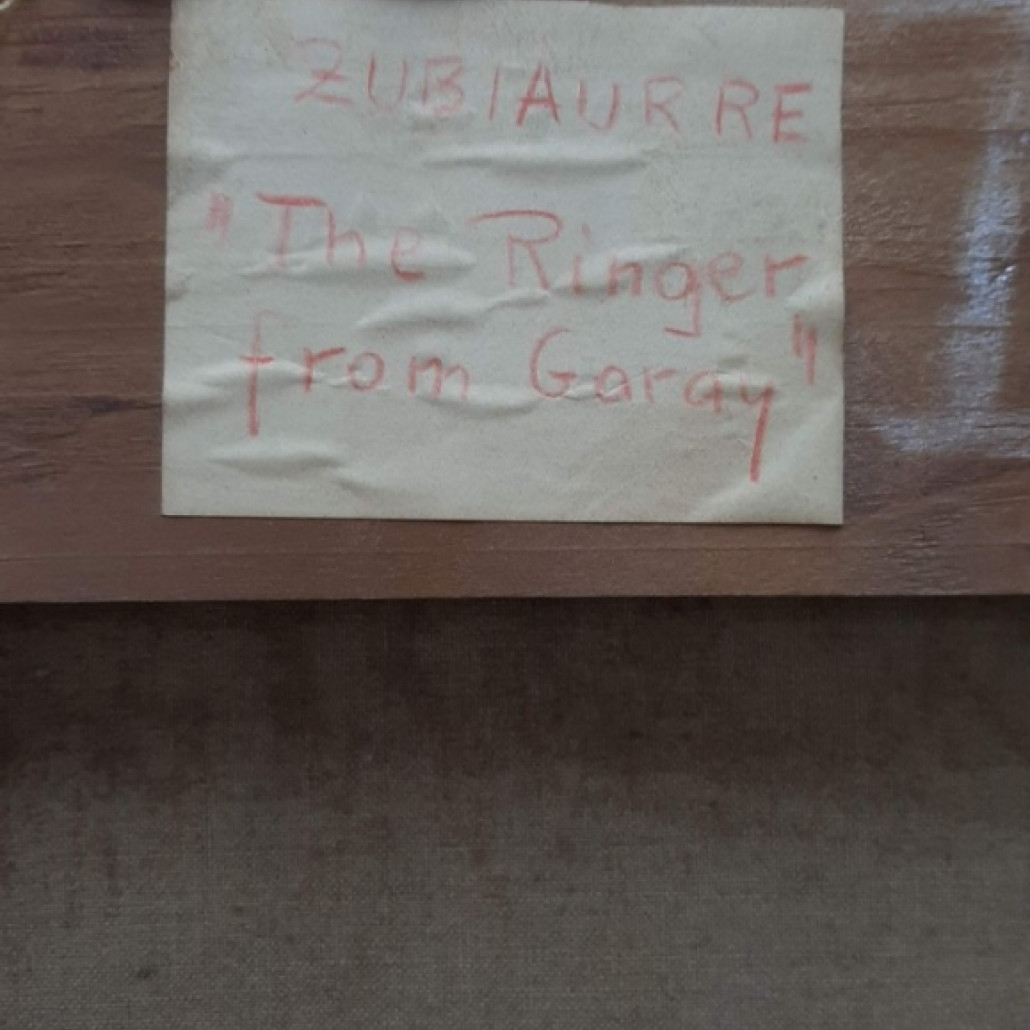 ZUBIAURRE
"The Ringer
from Garay"